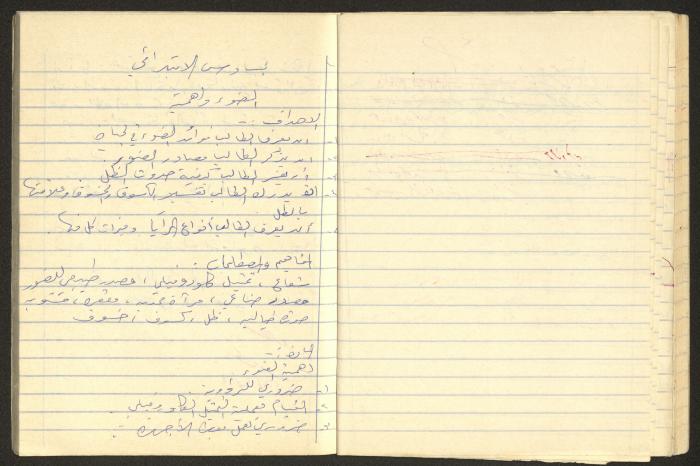 السادس الابتدائي
الضوء وأهمية
الأهداف :-
١- ان يعرف الطالب فوائد الضوء في الحياة
٢- ان يذكر الطالب مصادر الضوء .
٣- أن يفسر الطالب كيفية حدوث الظل
٤- ان يدرك الطالب تفسير الكسوف والخسوف وعلاقتها
بالظل
٥- أن يعرف الطالب أنواع المرايا وميزات كل منها .
المفاهيم والمصطلحات :
شعاع ، تمثيل كلوروفيلي ، مصدر طبيعي للضوء
مصدر صناعي ، مرآة ، مقعرة ، مستوية
صورة خيالية ، ظل ، كسوف ، خسوف
أهمية الضوء
١- ضروري للرؤية .
٢- القيام بعملية التمثيل الكلوروفيلي .
٣- ضروري لعمل بعض الأجهزة